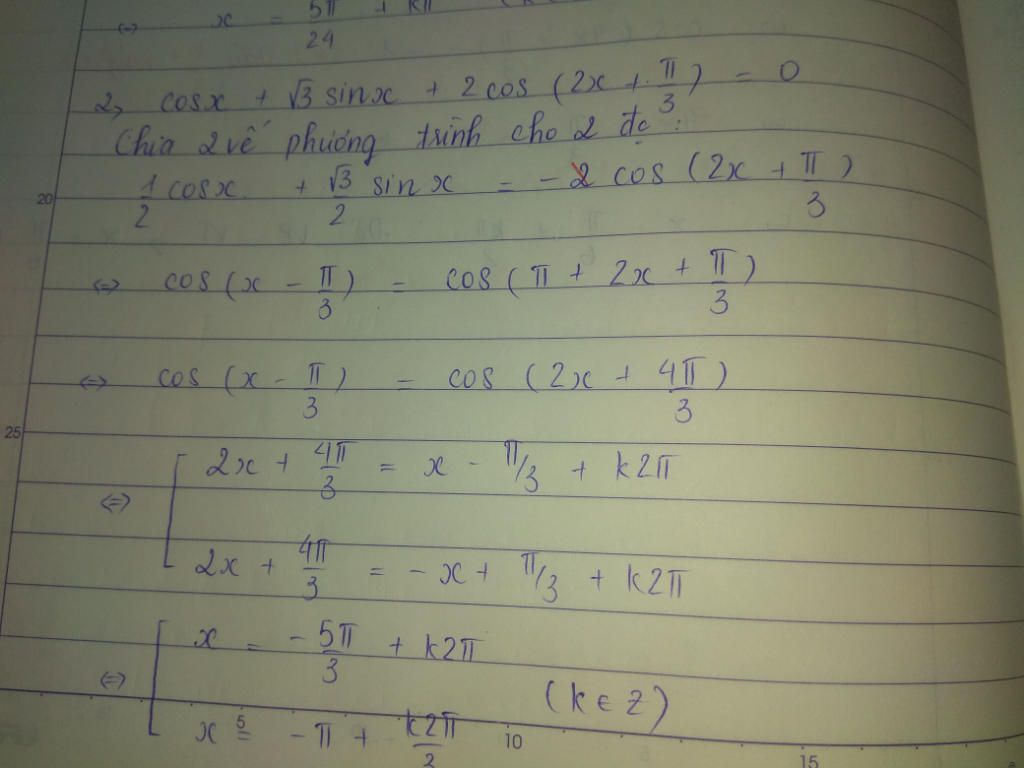 ⇔ x = 5π/24 + kπ
2, cosx + √3 sinx + 2 cos (2x + π/3) = 0
Chia 2 vế phương trình cho 2 đc :
1/2 cosx + √3/2 sin x = - 2 cos (2x + π/3)
⇔ cos (x - π/3) = cos (π + 2x + π/3)
⇔ cos (x - π/3) = cos (2x + 4π/3)
⇔ [ 2x + 4π/3 = x - π/3 + k2π
2x + 4π/3 = - x + π/3 + k2π
⇔ [ x = - 5π/3 + k2π
(k ∈ Z)
x = - π + k2π/3
20
25
5
10
15